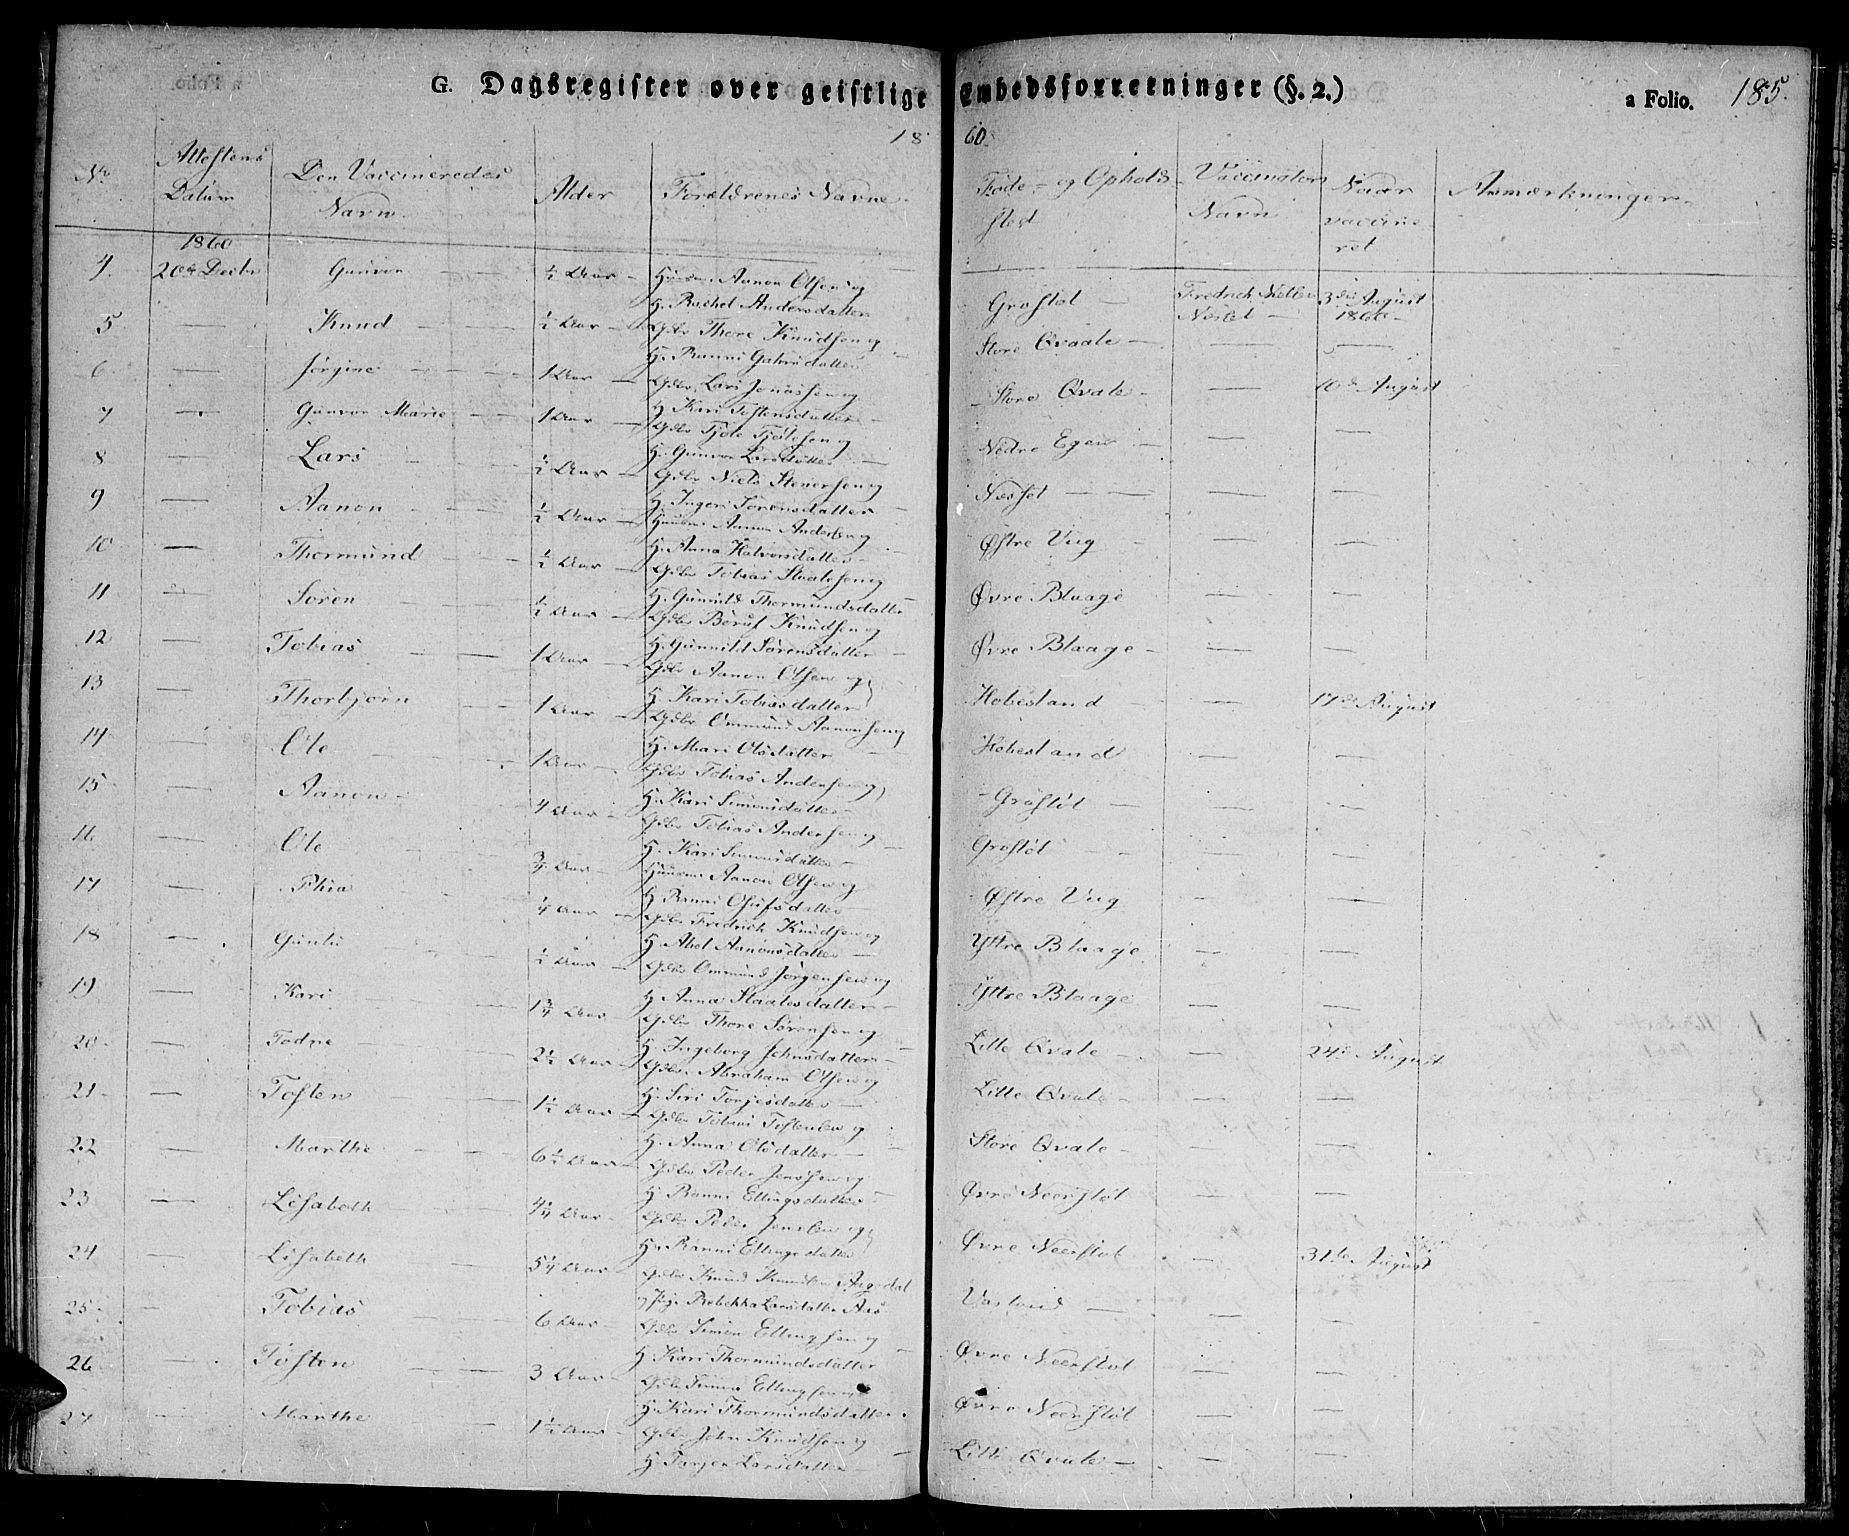 G. Dagsregister over geistlige Embedsforretninger (§. 2.) a Folio. 185.
18 60.
No Attestens Datum Den Vaccineredes Navn Alder Forældrenes Navne Føde- og Opholdssted Vaccinators Navn Naar vaccineret Anmærkninger
1860
4. 20de Decbr Gunvor ½ Aar Huusm Aanon Olsen og
H. Rachel Andersdatter Grostøl Fredrich 3die August
1860
5 — Knud ½ Aar Gdbr Thore Knudsen og
H. Ranni Store Qvaale — —
6. — Jørgine 1 Aar Gdbr. Lars Jonassen og
H. Kari Tostensdatter Store Qvale — — 10de August
7 — Gunvor Marie 1 Aar Gdbr Tjøle Tjølesen og
H. Gunvor Larsdatter Nedre Egeus — —
8 — Lars ½ Aar Gdbr Niels Stenersen og
H. Ingeri Sørensdatter Næsset — —
9 — Aanon ½ Aar Huusm Aanon Anders og
H. Anna Halvorsdatter Østre Ung — —
10 — Thormund ½ Aar Gdbr Tobias Staalesen og
H. Gunuld Thormundsdatter Øvre Blaage — —
11 — Søren ½ Aar Gdbr Beruf Knudsen og
H. Gunnild Sørensdatter Øvre Blaage — —
12 — Tobias 1 Aar Gdbr Aanon Olsen og
H. Kari Tobiasdatter Hobesland — 17de August
13 — Thorbjørn 1 Aar Gdbr Ommund Aanonsen og
H. Mari Olsdatter Hobesland — —
14 — Ole 1 Aar Gdbr Tobias Andersen og
H. Kari Simonsdatter Grostøl — —
15 — Aanon 4 Aar Gdbr Tobias Andersen og
H. Kari Simonsdatter Grostøl — —
16 — Ole ¾ Aar Huusm Aanon Olsen og
H. Ranni Olufsdatter Østre Ung — —
17 — Phia ¼ Aar Gdbr Fredrich Knudsen og
H. Abel Aanonsdatter Yttre Blaage — —
18 — Guntu ½ Aar Gdbr Ommund Jørgensen og
H. Anna Staalesdatter Yttre Blaage — —
19 — Kari 1¾ Aar Gdbr Thore Sørensen og
H. Ingeborg Johnsdatter Litte Qvale — 24de August
20 — Todne 2½ Aar Gdbr Abraham Olsen og
H. Siri Torjesdatter Litte Qvale — —
21 — Tosten 1½ Aar Gdbr Tobias Tostensen og
H. Anna Olsdatter Store Qvale — —
22 — Marthe 6½ Aar Gdbr Peder Jenssen og
H. Ranni Ellingsdatter Øvre Neerstøl — —
23 — Lisabeth 4¼ Aar Gdbr Peder Jenssen og
H. Ranni Ellingsdatter Øvre Neerstøl — 31te August
24 — Lisabeth 5¼ Aar Gdbr Knud Knudsen Aagedal
og Pige Rebekka Larsdatter Aas Vasland — —
25 — Tobias 6 Aar Gdbr Simon Ellingsen og
H. Kari Thormundsdatter Øvre Neerstøl — —
26 — Tosten 3 Aar Gdbr Simon Ellingsen og
H. Kari Thormundsdatter Øvre Neerstøl — —
27 — Marthe 1½ Aar Gdbr John Knudsen og
H. Tarjer Larsdatter Litle Qvale — —